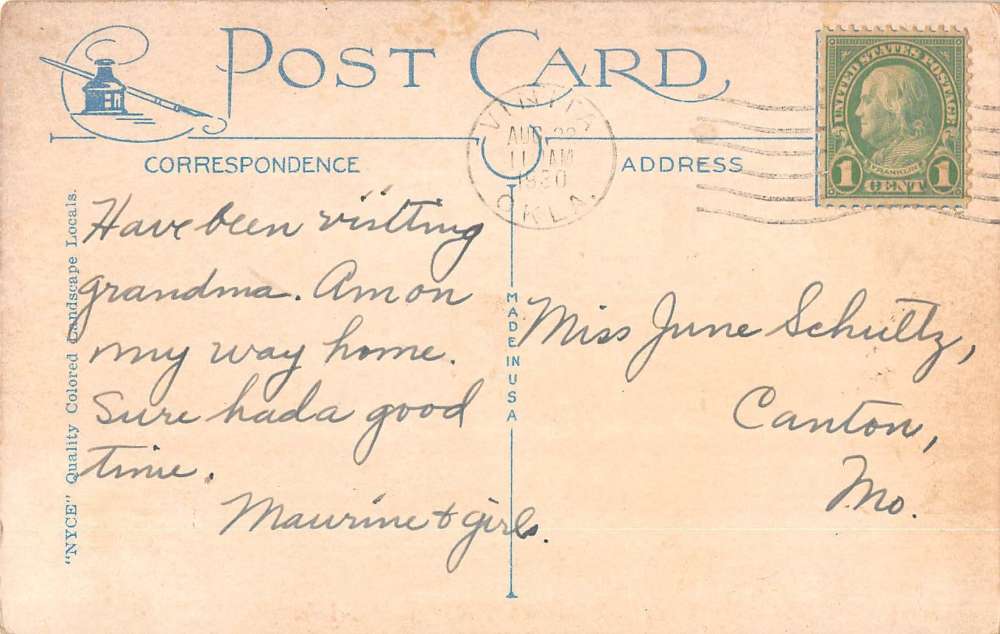 POST CARD
CORRESPONDENCE
ADDRESS
VINITA
AUG 22
11 AM
1930
OKLA.
UNITED STATES POSTAGE
FRANKLIN
1 CENT 1
Have been visiting
grandma. Am on
my way home.
Sure had a good
time.
Maurine & girls.
Miss June Schultz,
Canton,
Mo.
MADE IN USA
"NYCE" Quality Colored Landscape Locals.